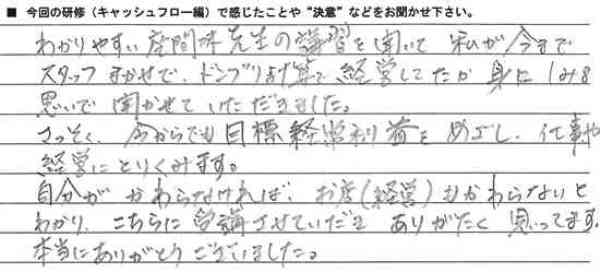 ■ 今回の研修（キャッシュフロー編）で感じたことや“決意”などをお聞かせ下さい。
わかりやすい座間味先生の講習を聞いて 私が今まで
スタッフまかせで、ドンブリ計算で経営してたか 身にしみる
思いで聞かせていただきました。
さっそく、今からでも目標経常利益をめざし、仕事や
経営にとりくみます。
自分が かわらなければ、お店(経営)もかわらないと
わかり、こちらに受講させていただき ありがたく思ってます。
本当にありがとうございました。